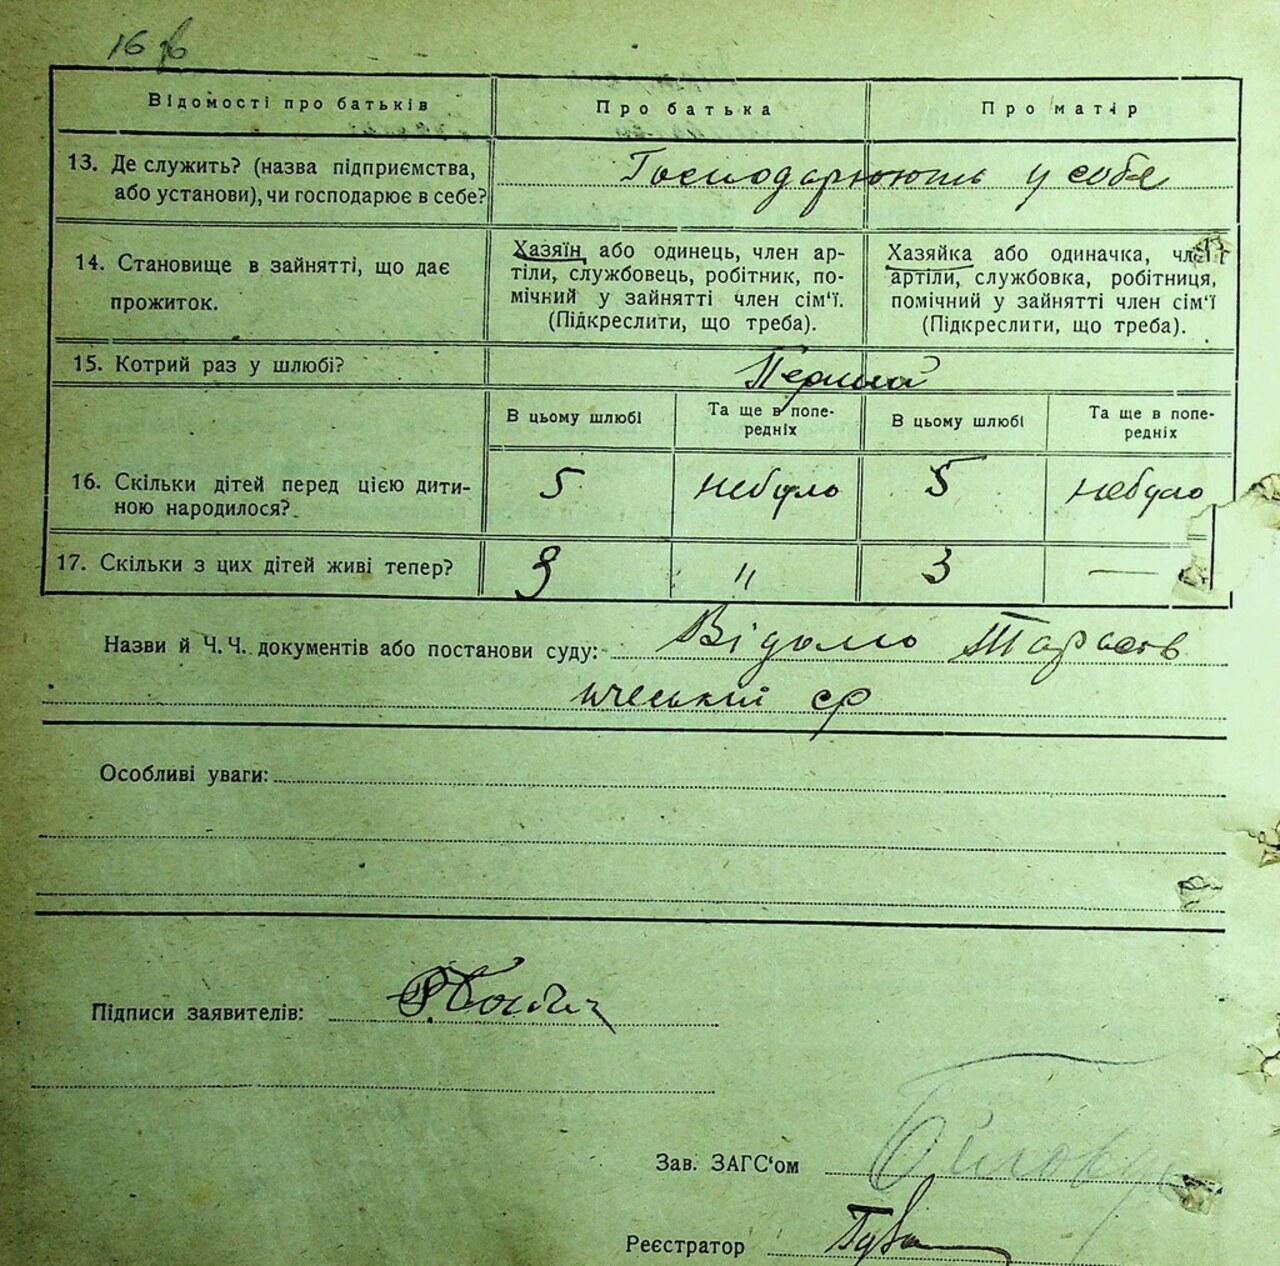 16
Відомості про батьків
Про батька
Про матір
13. Де служить? (назва підприємства,
або установи), чи господарює в себе?
Господарюють у себе
14. Становище в зайнятті, що дає
прожиток.
Хазяїн, або одинець, член ар-
тілі, службовець, робітник, по-
мічний у зайнятті член сім'ї.
(Підкреслити, що треба).
Хазяйка або одиначка, член
артілі, службовка, робітниця,
помічний у зайнятті член сім'ї
(Підкреслити, що треба).
15. Котрий раз у шлюбі?
Перший
В цьому шлюбі
Та ще в попе-
редніх
В цьому шлюбі
Та ще в попе-
редніх
16. Скільки дітей перед цією дити-
ною народилося?
5
небуло
5
небуло
17. Скільки з цих дітей живі тепер?
3
"
3
—
Назви й Ч.Ч. документів або постанови суду: Відомо
ср
Особливі уваги:
Підписи заявителів:
Зав. ЗАГС'ом
Реєстратор